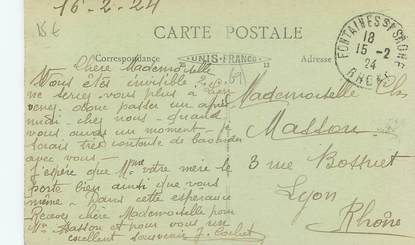 16-2-24
15 €
CARTE POSTALE
Correspondance
UNIS-FRANCE
Adresse
FONTAINES S/ SAONE
18
15 -2
24
RHÔNE
Chère Mademoiselle
Vous êtes invisible
ne seriez vous plus à Lyon
venez donc passer un après
midi chez nous quand
vous aurez un moment je
serais très contente de bavarder
avec vous
J'espère que Mme votre mère se
porte bien ainsi que vous
même dans cette espérance
Recevez chère Mademoiselle pour
Me Masson et pour vous un
excellent souvenir J.
69
Mademoiselle
Masson
3 rue Bossuet
Lyon
Rhône